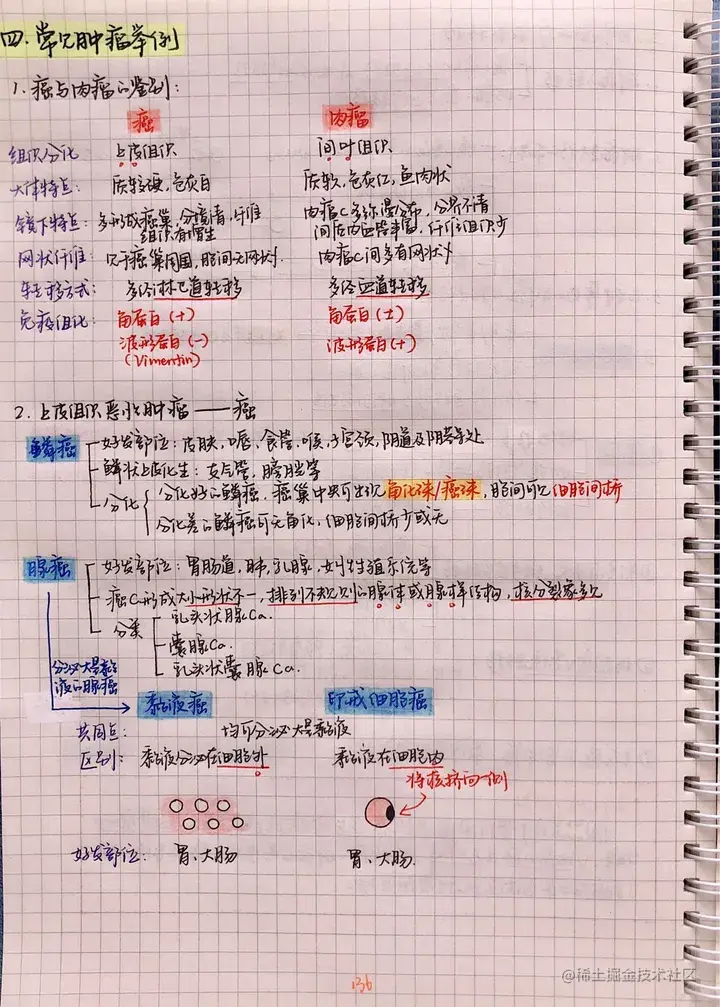 四.常见肿瘤举例
1.癌与肉瘤的鉴别:
癌 肉瘤
组织分化 上皮组织 间叶组织
大体特点: 质较硬,色灰白 质软,色灰红,鱼肉状
镜下特点: 多形成癌巢,分境清,纤维组织有增生 肉瘤C多弥漫分布,分界不清 间质内血管丰富,纤维组织少
网状纤维: 见于癌巢周围,胞间无网状f. 肉瘤C间多有网状f
转移方式: 多经淋巴道转移 多经血道转移
免疫组化: 角蛋白(+) 角蛋白(±)
波形蛋白(-) 波形蛋白(+)
(Vimentin)
2.上皮组织恶性肿瘤——癌
鳞癌 好发部位:皮肤,唇,食管,喉,子宫颈,阴道及阴茎等处
鳞状上皮化生:支气管,膀胱等
分化 分化好的鳞癌,癌巢中央可出现角化珠/癌珠,胞间可见细胞间桥
分化差的鳞癌可无角化,细胞间桥少或无
腺癌 好发部位:胃肠道,肺,乳腺,女性生殖系统等
癌C形成大小形状不一,排列不规则的腺体或腺样结构,核分裂象多见
分类 乳头状腺Ca.
囊腺Ca.
乳头状囊腺Ca.
分泌大量黏液的腺癌
黏液癌 印戒细胞癌
共同点: 均可分泌大量黏液
区别: 黏液分泌在细胞外 黏液在细胞内
将核挤向一侧
好发部位: 胃、大肠 胃、大肠.
136
@稀土掘金技术社区